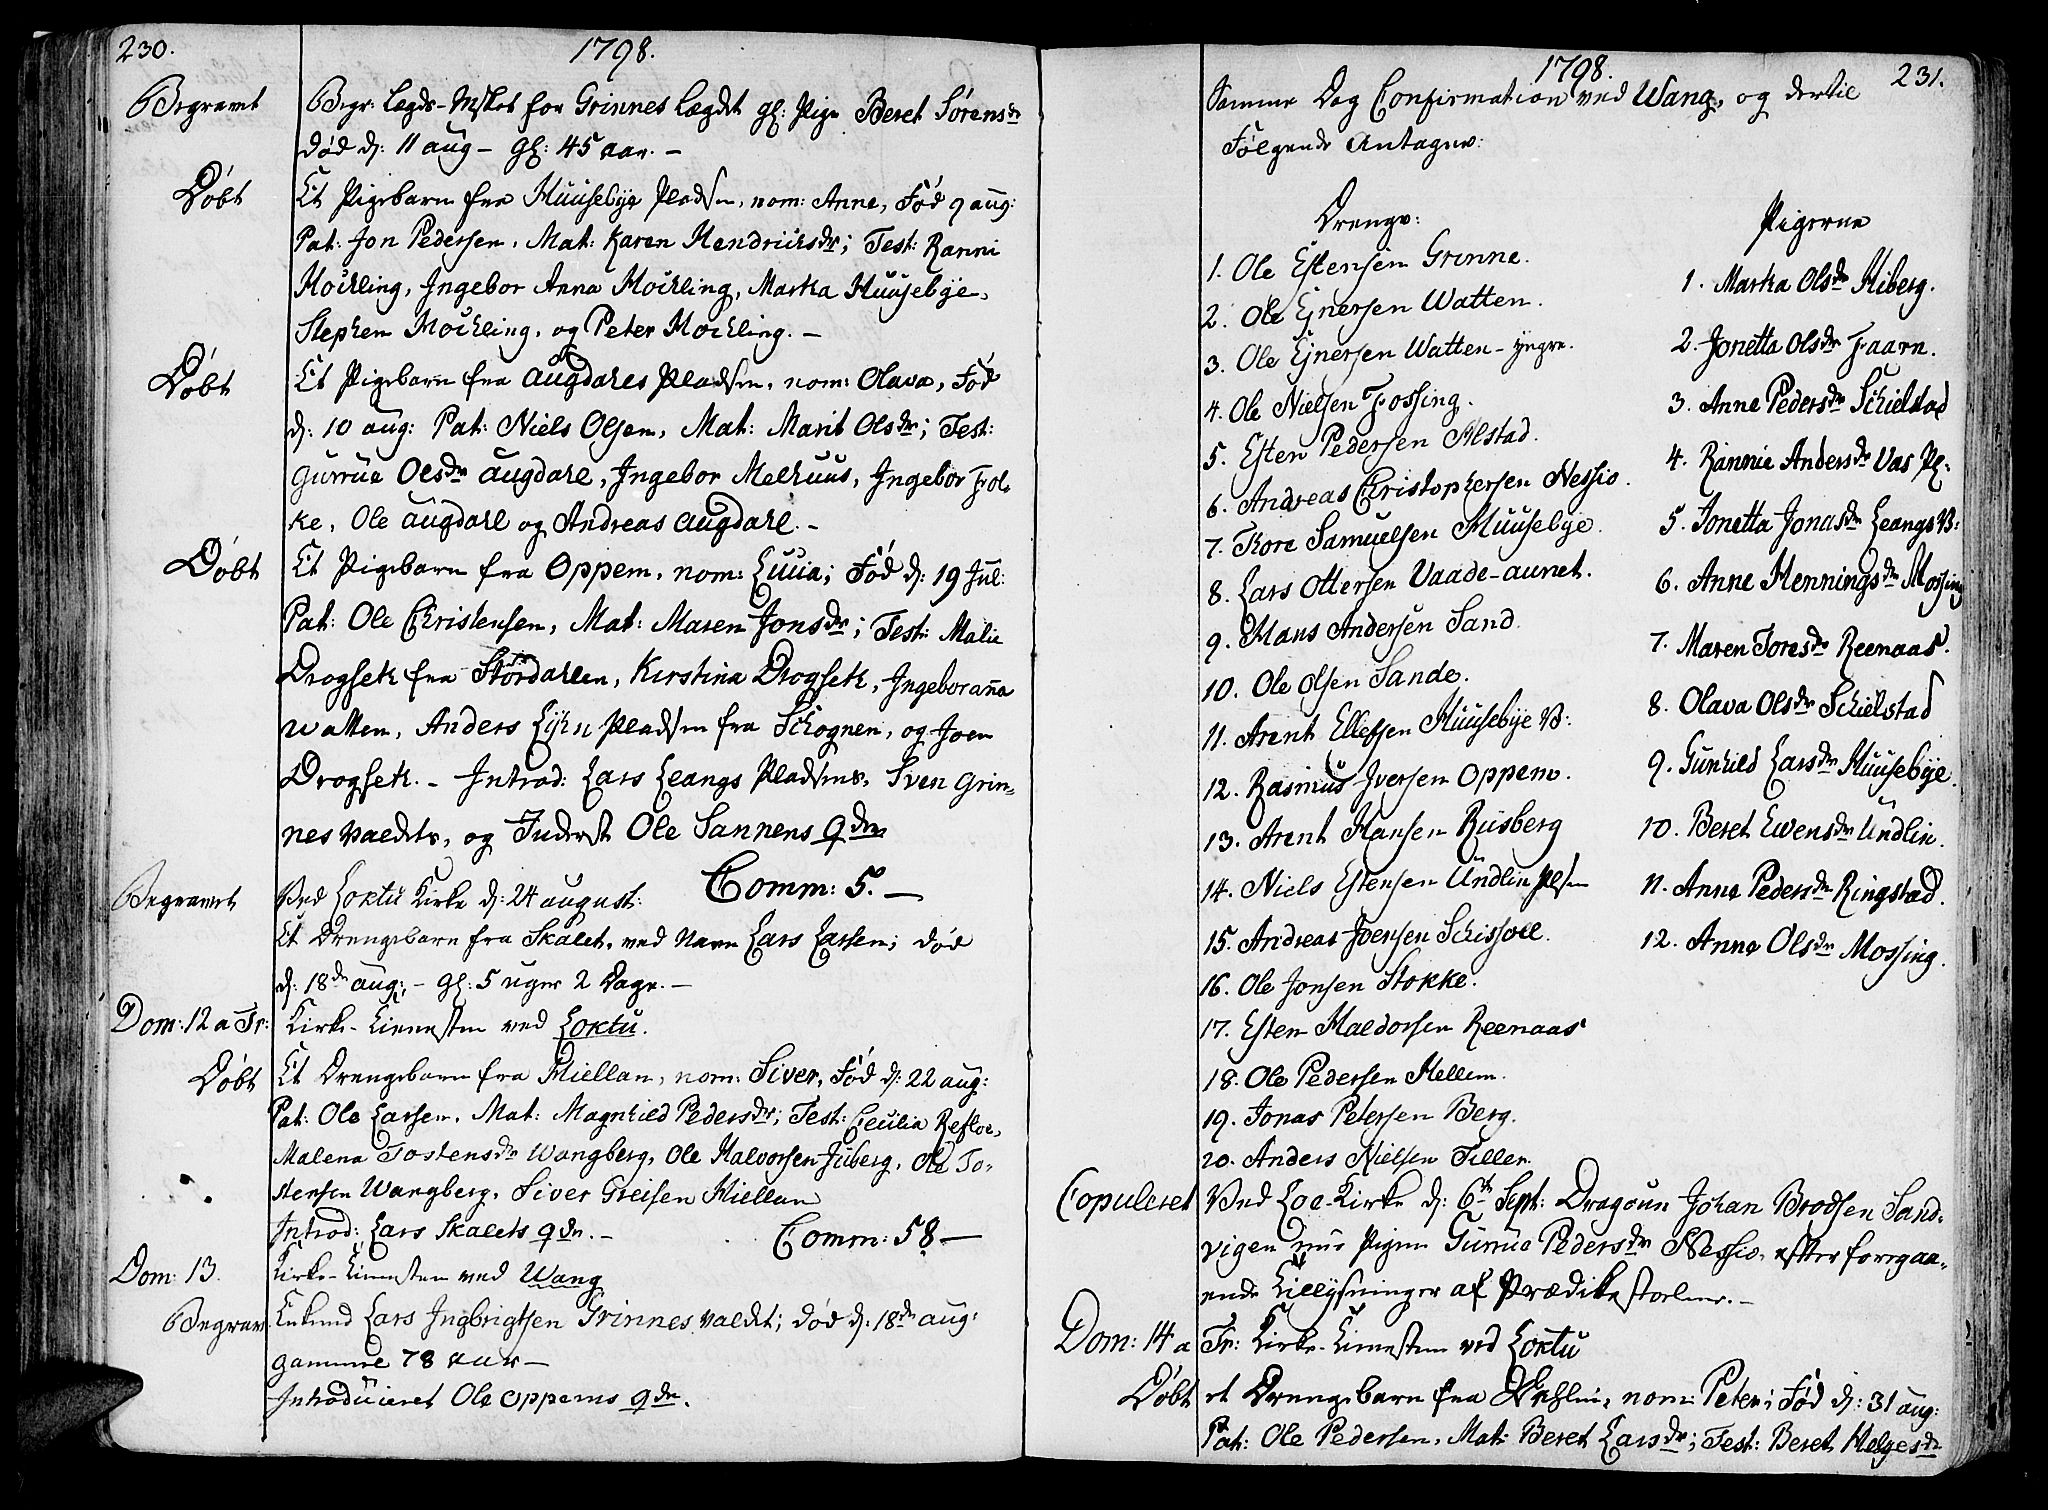 230.
1798.
Begravet
Begr: Lægds-Msket fra Grinnes Lægdt gl: Pige Beret Sørensdr
død d: 11 aug - gl: 45 aar. -
Døbt
Et Pigebarn fra Huusebye Pladsen, nom: Anne, Fød 9 aug:
Pat: Jon Pedersen, Mat: Karen Hendrichsdr; Test: Ranni
Mochling, Ingebor Anna Mochling, Marka Huusebye,
Stephen Mochling, og Peter Mochling. -
Døbt
Et Pigebarn fra Augdahls Pladsen, nom: Olava, Fød
d: 10 aug: Pat: Niels Olsen, Mat: Marit Olsdr; Test:
Gurrue Olsdr Augdahl, Ingebor Melhuus, Ingebor Fol-
ke, Ole Augdahl og Andreas Augdahl. -
Døbt
Et Pigebarn fra Oppem, nom: Lucia; Fød d: 19 Jul:
Pat: Ole Christensen, Mat: Maren Jonsdr; Test: Malie
Drogseth fra Størdahlen, Kirstina Drogseth, Ingeboranna
Watten, Anders Pladsen fra Schognen, og Joen
Drogseth. - Introd: Lars Leangs Pladsens, Sven Grin-
nes valdets, og Inderst Ole Sannens qde
Begravet
Ved Loktu Kirke d: 24 august: Comm: 5. -
Et Drengebarn fra Skalet, ved Navn Lars Larsen; død
d: 18de aug: - gl: 5 uger 2 Dage. -
Dom: 12 a Tr:
Kirke-Tienesten ved Loktu.
Døbt
Et Drengebarn fra Hiellan, nom: Siver, Fød d: 22 aug:
Pat: Ole Larsen, Mat: Magnhild Pedersdr; Test: Cecilia Refloe,
Malena Tostensdr Wangberg, Ole Halvorsen Juberg, Ole To-
stensen Wangberg, Siver Greisen Hiellan
Introd: Lars Skalets qde. - Comm: 58 -
Dom: 13.
Kirke-Tienesten ved Wang
Begrav
Lars Ingbrigtsen Grinnes valdet; død d: 18de aug:
gammel 78 aar -
Introducieret Ole Oppems qde.
1798.
231.
Samme Dag Confirmation ved Wang, og dertil
Følgende Antagne:
Drenge:
1. Ole Estensen Grinne.
2. Ole Ejnersen Watten.
3. Ole Ejnersen Watten - yngre.
4. Ole Nielsen Fossing.
5. Esten Pedersen Alstad.
6. Andreas Christophersen Nessio.
7. Thore Samuelsen Huusebye.
8. Lars Ottersen Vaade-aunet.
9. Hans Andersen Sand.
10. Ole Olsen Sande.
11. Arent Ellefsen Huusebye V:
12. Rasmus Iversen Oppem.
13. Arent Hansen Riisberg
14. Niels Estensen Undlin Plsen
15. Andreas Joensen Schissoel.
16. Ole Jonsen Stokke.
17. Esten Haldorsen Reenaas
18. Ole Pedersen Hellem.
19. Jonas Petersen Berg.
20. Anders Nielsen Tiller.
Pigerne
1. Marka Olsdr Hiberg.
2. Jonetta Olsdr Faarn.
3. Anne Pedersdr Schielstad
4. Rannie Andersdr Vas Pl:
5. Jonetta Jonasdr Leangs V:
6. Anne Henningsdr Mossing
7. Maren Toresdr Reenaas.
8. Olava Olsdr Schielstad
9. Gunhild Larsdr Huusebye.
10. Beret Ewensdr Undlin.
11. Anne Pedersdr Ringstad.
12. Anne Olsdr Mossing.
Copuleret
Ved Loe-Kirke d: 6te Sept: Dragoun Johan Brodsen Sand-
vigen med Pigen Gurrue Pedersdr Nessio, efter foregaa-
ende Tillysninger af Prædikestolene. -
Dom: 14 a
Tr: Kirke-Tienesten ved Loktu
Døbt
et Drengebarn fra nom: Peter; Fød d: 31 aug:
Pat: Ole Pedersen, Mat: Beret Larsdr; Test: Beret Helgesdr